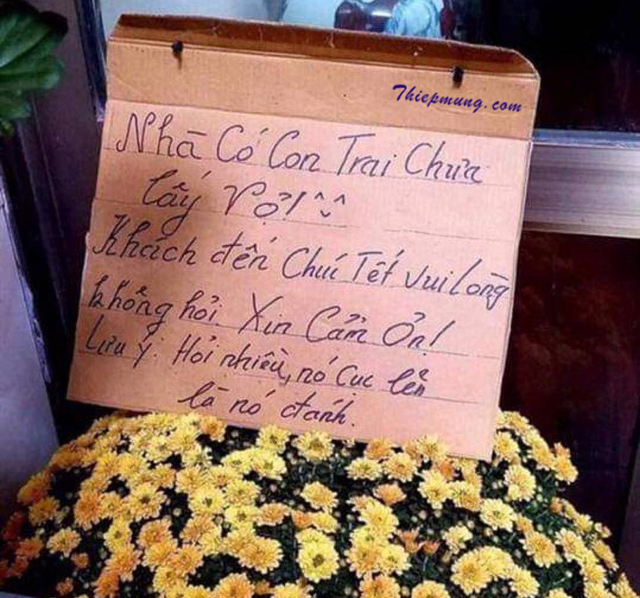 Thiepmung.com
Nhà Có Con Trai Chưa
lấy Vợ! ^^
Khách đến Chúc Tết vui lòng
không hỏi. Xin Cảm Ơn!
Lưu ý: Hỏi nhiều, nó Cục lên
là nó đánh.